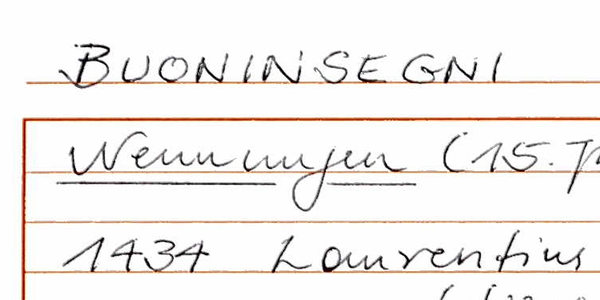 BUONINSEGNI
Nennungen (15. J
1434 Laurentius